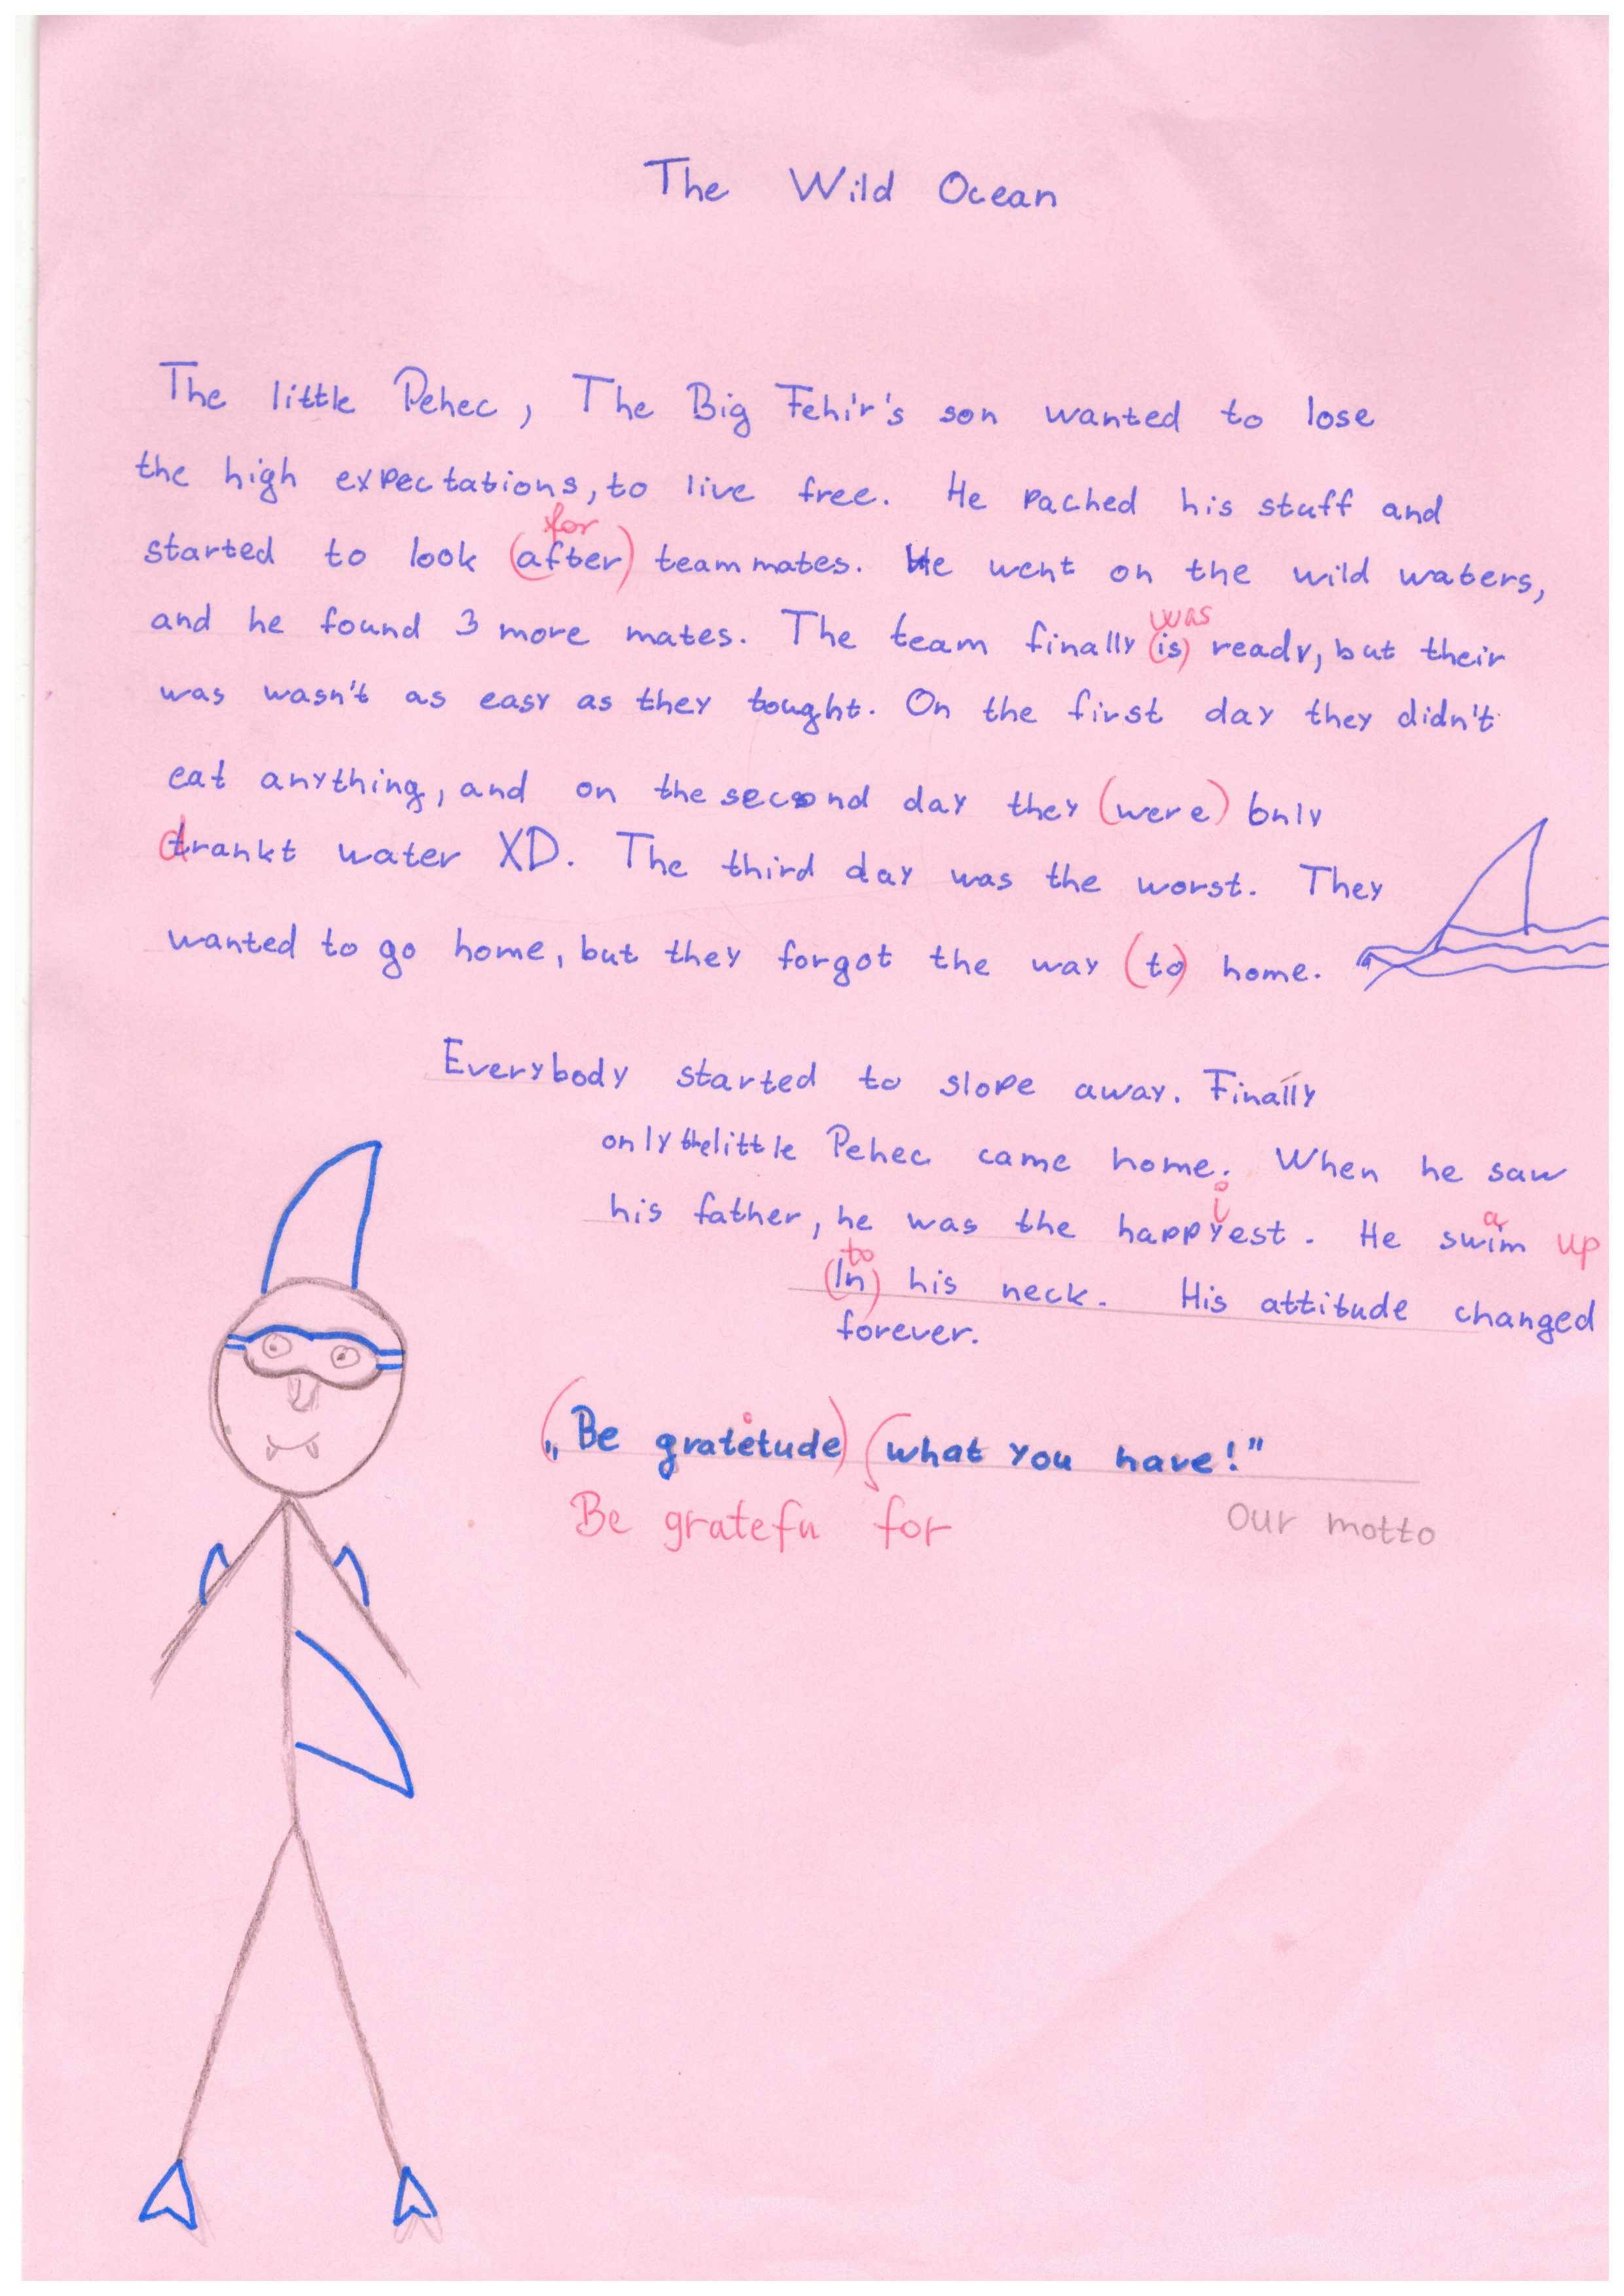 The Wild Ocean
The little Pehec, The Big Fehír's son wanted to lose
the high expectations, to live free. He pached his stuff and
for
started to look (after) teammates. He went on the wild waters,
was
and he found 3 more mates. The team finally (is) ready, but their
was wasn't as easy as they tought. On the first day they didn't
eat anything, and on the second day they (were) only
drankt water XD. The third day was the worst. They
wanted to go home, but they forgot the way (to) home.
Everybody started to slope away. Finally
only the little Pehec came home. When he saw
i a
his father, he was the happyest. He swim up
to
(In) his neck. His attitude changed
forever.
i
(„Be gratetude) (what you have!"
Be gratefu for
Our motto